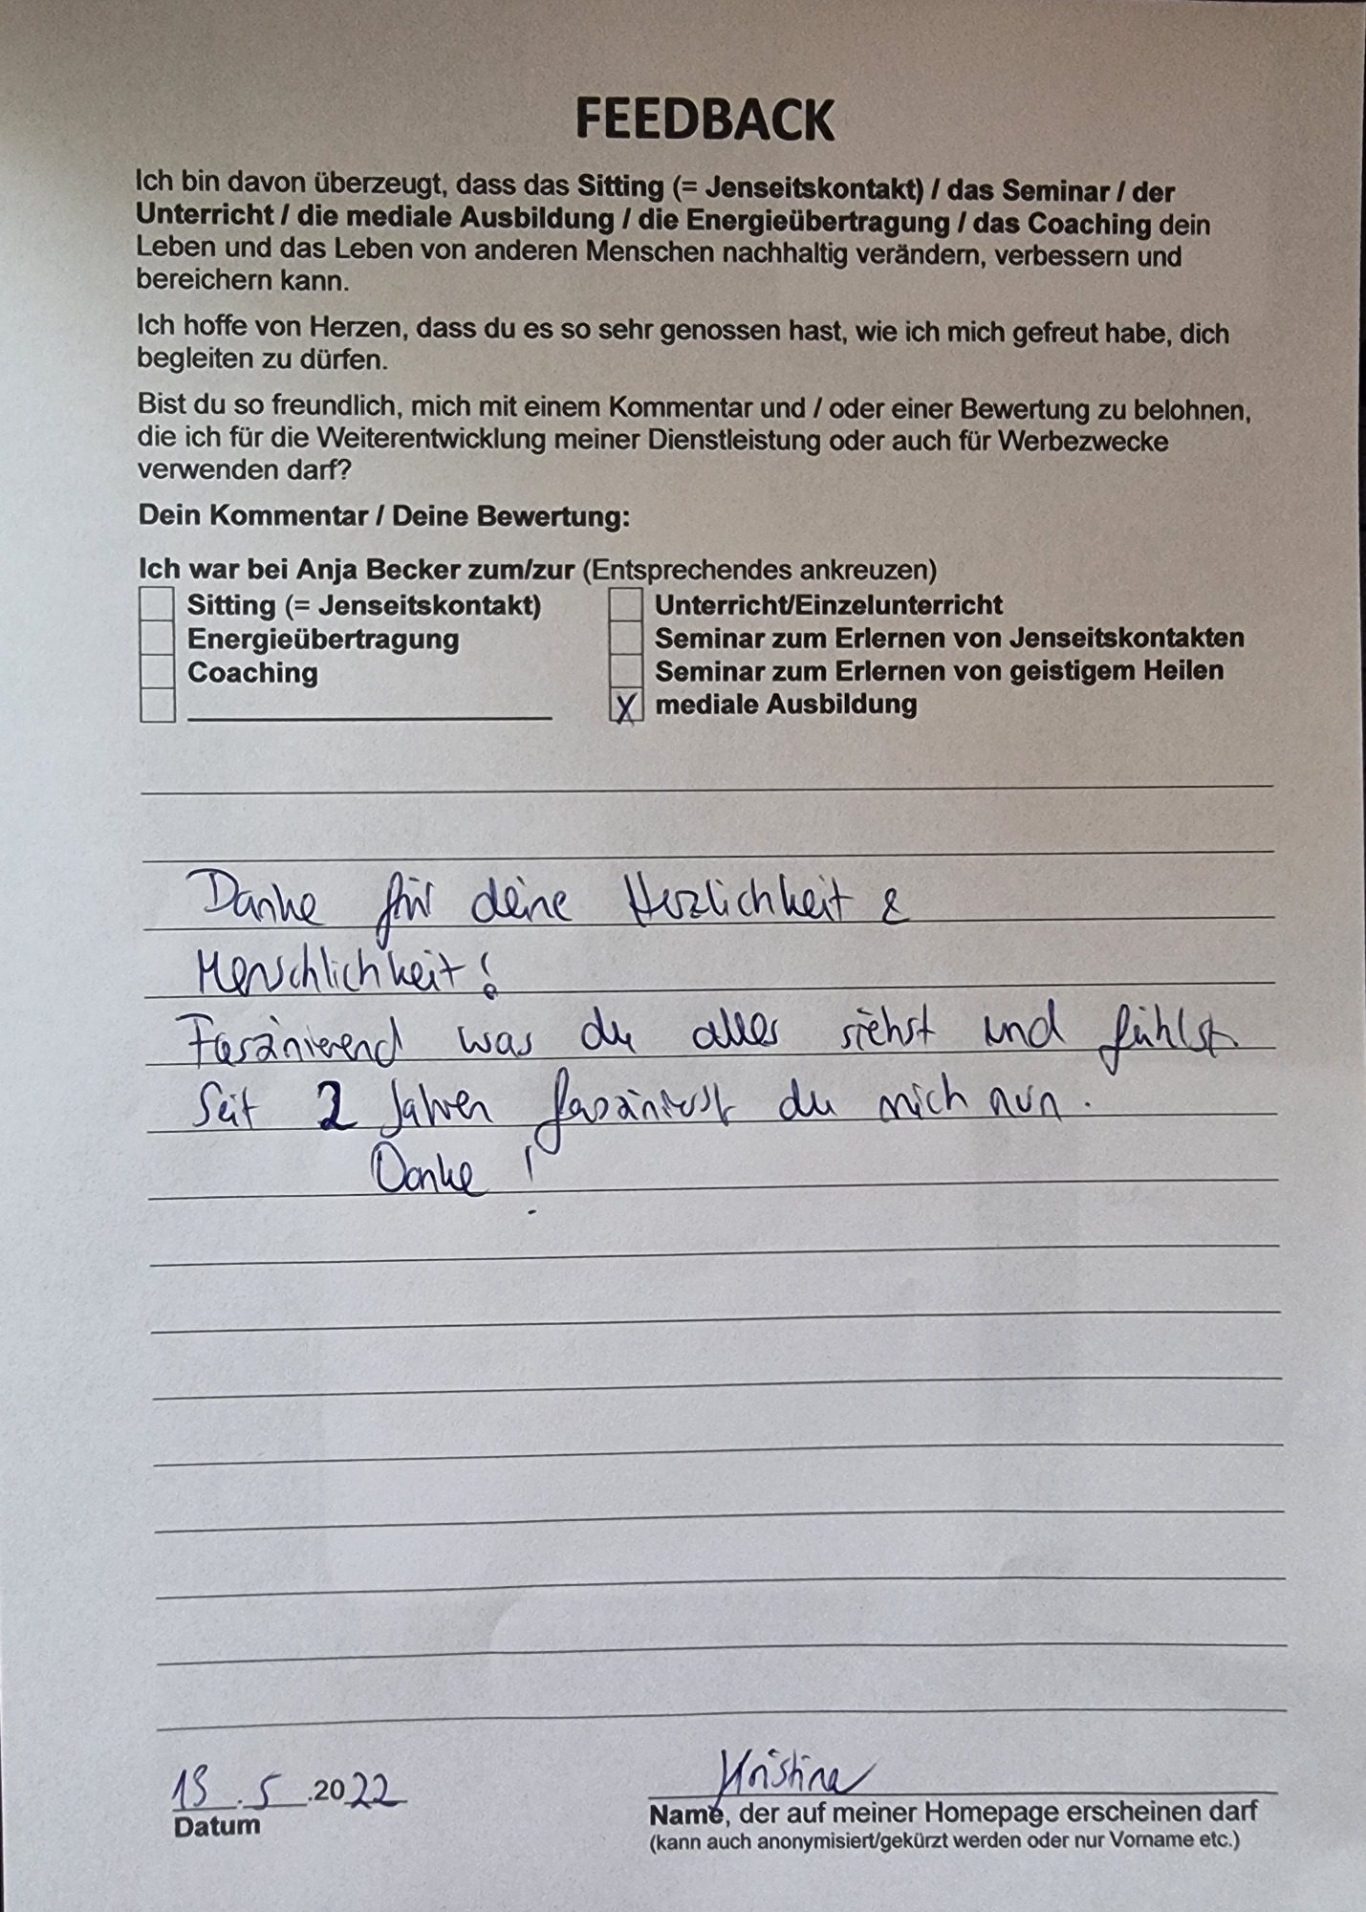 FEEDBACK
Ich bin davon überzeugt, dass das Sitting (= Jenseitskontakt) / das Seminar / der
Unterricht / die mediale Ausbildung / die Energieübertragung / das Coaching dein
Leben und das Leben von anderen Menschen nachhaltig verändern, verbessern und
bereichern kann.
Ich hoffe von Herzen, dass du es so sehr genossen hast, wie ich mich gefreut habe, dich
begleiten zu dürfen.
Bist du so freundlich, mich mit einem Kommentar und / oder einer Bewertung zu belohnen,
die ich für die Weiterentwicklung meiner Dienstleistung oder auch für Werbezwecke
verwenden darf?
Dein Kommentar / Deine Bewertung:
Ich war bei Anja Becker zum/zur (Entsprechendes ankreuzen)
Sitting (= Jenseitskontakt)
Energieübertragung
Coaching
Unterricht/Einzelunterricht
Seminar zum Erlernen von Jenseitskontakten
Seminar zum Erlernen von geistigem Heilen
X mediale Ausbildung
Danke für deine Herzlichkeit &
Menschlichkeit!
Faszinierend was du alles siehst und fühlst.
Seit 2 Jahren faszinierst du mich nun.
Danke !
.5.2022
Datum
Kristina
Name, der auf meiner Homepage erscheinen darf
(kann auch anonymisiert/gekürzt werden oder nur Vorname etc.)